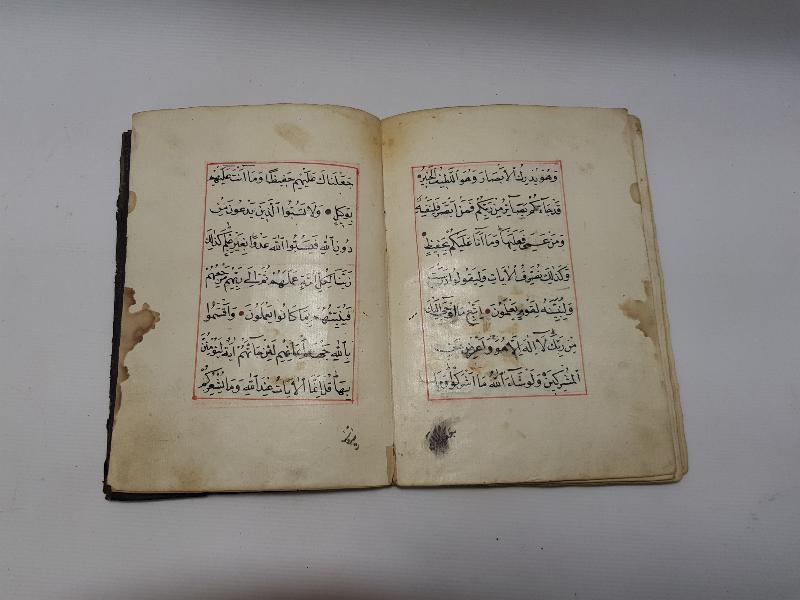 وَهُوَ يُدْرِكُ الْأَبْصَارَ وَهُوَ اللَّطِيفُ الْخَبِيرُ
قَدْ جَاءَكُمْ بَصَائِرُ مِنْ رَبِّكُمْ فَمَنْ أَبْصَرَ فَلِنَفْسِهِ
وَمَنْ عَمِيَ فَعَلَيْهَا وَمَا أَنَا عَلَيْكُمْ بِحَفِيظٍ
وَكَذَلِكَ نُصَرِّفُ الْآيَاتِ وَلِيَقُولُوا دَرَسْتَ
وَلِنُبَيِّنَهُ لِقَوْمٍ يَعْلَمُونَ اتَّبِعْ مَا أُوحِيَ إِلَيْكَ
مِنْ رَبِّكَ لَا إِلَهَ إِلَّا هُوَ وَأَعْرِضْ عَنِ
الْمُشْرِكِينَ وَلَوْ شَاءَ اللَّهُ مَا أَشْرَكُوا وَمَا
جَعَلْنَاكَ عَلَيْهِمْ حَفِيظًا وَمَا أَنْتَ عَلَيْهِمْ
بِوَكِيلٍ وَلَا تَسُبُّوا الَّذِينَ يَدْعُونَ مِنْ
دُونِ اللَّهِ فَيَسُبُّوا اللَّهَ عَدْوًا بِغَيْرِ عِلْمٍ كَذَلِكَ
زَيَّنَّا لِكُلِّ أُمَّةٍ عَمَلَهُمْ ثُمَّ إِلَى رَبِّهِمْ مَرْجِعُهُمْ
فَيُنَبِّئُهُمْ بِمَا كَانُوا يَعْمَلُونَ وَأَقْسَمُوا
بِاللَّهِ جَهْدَ أَيْمَانِهِمْ لَئِنْ جَاءَتْهُمْ آيَةٌ لَيُؤْمِنُنَّ
بِهَا قُلْ إِنَّمَا الْآيَاتُ عِنْدَ اللَّهِ وَمَا يُشْعِرُكُمْ